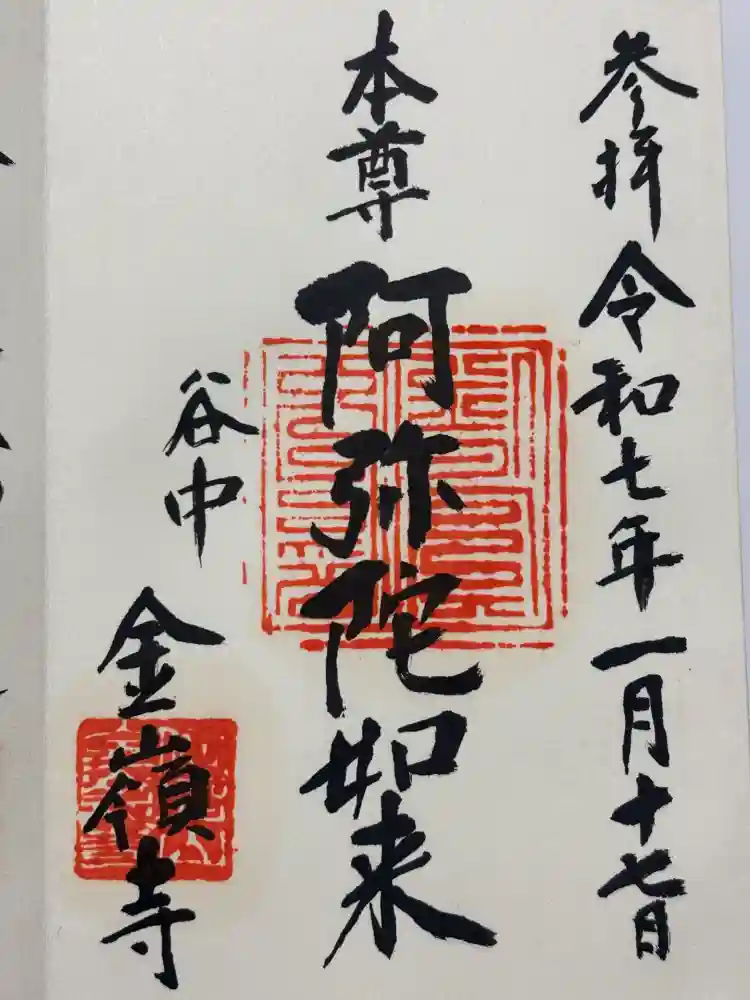 参拝 令和七年一月十七日
本尊 阿弥陀如来
谷中
金嶺寺